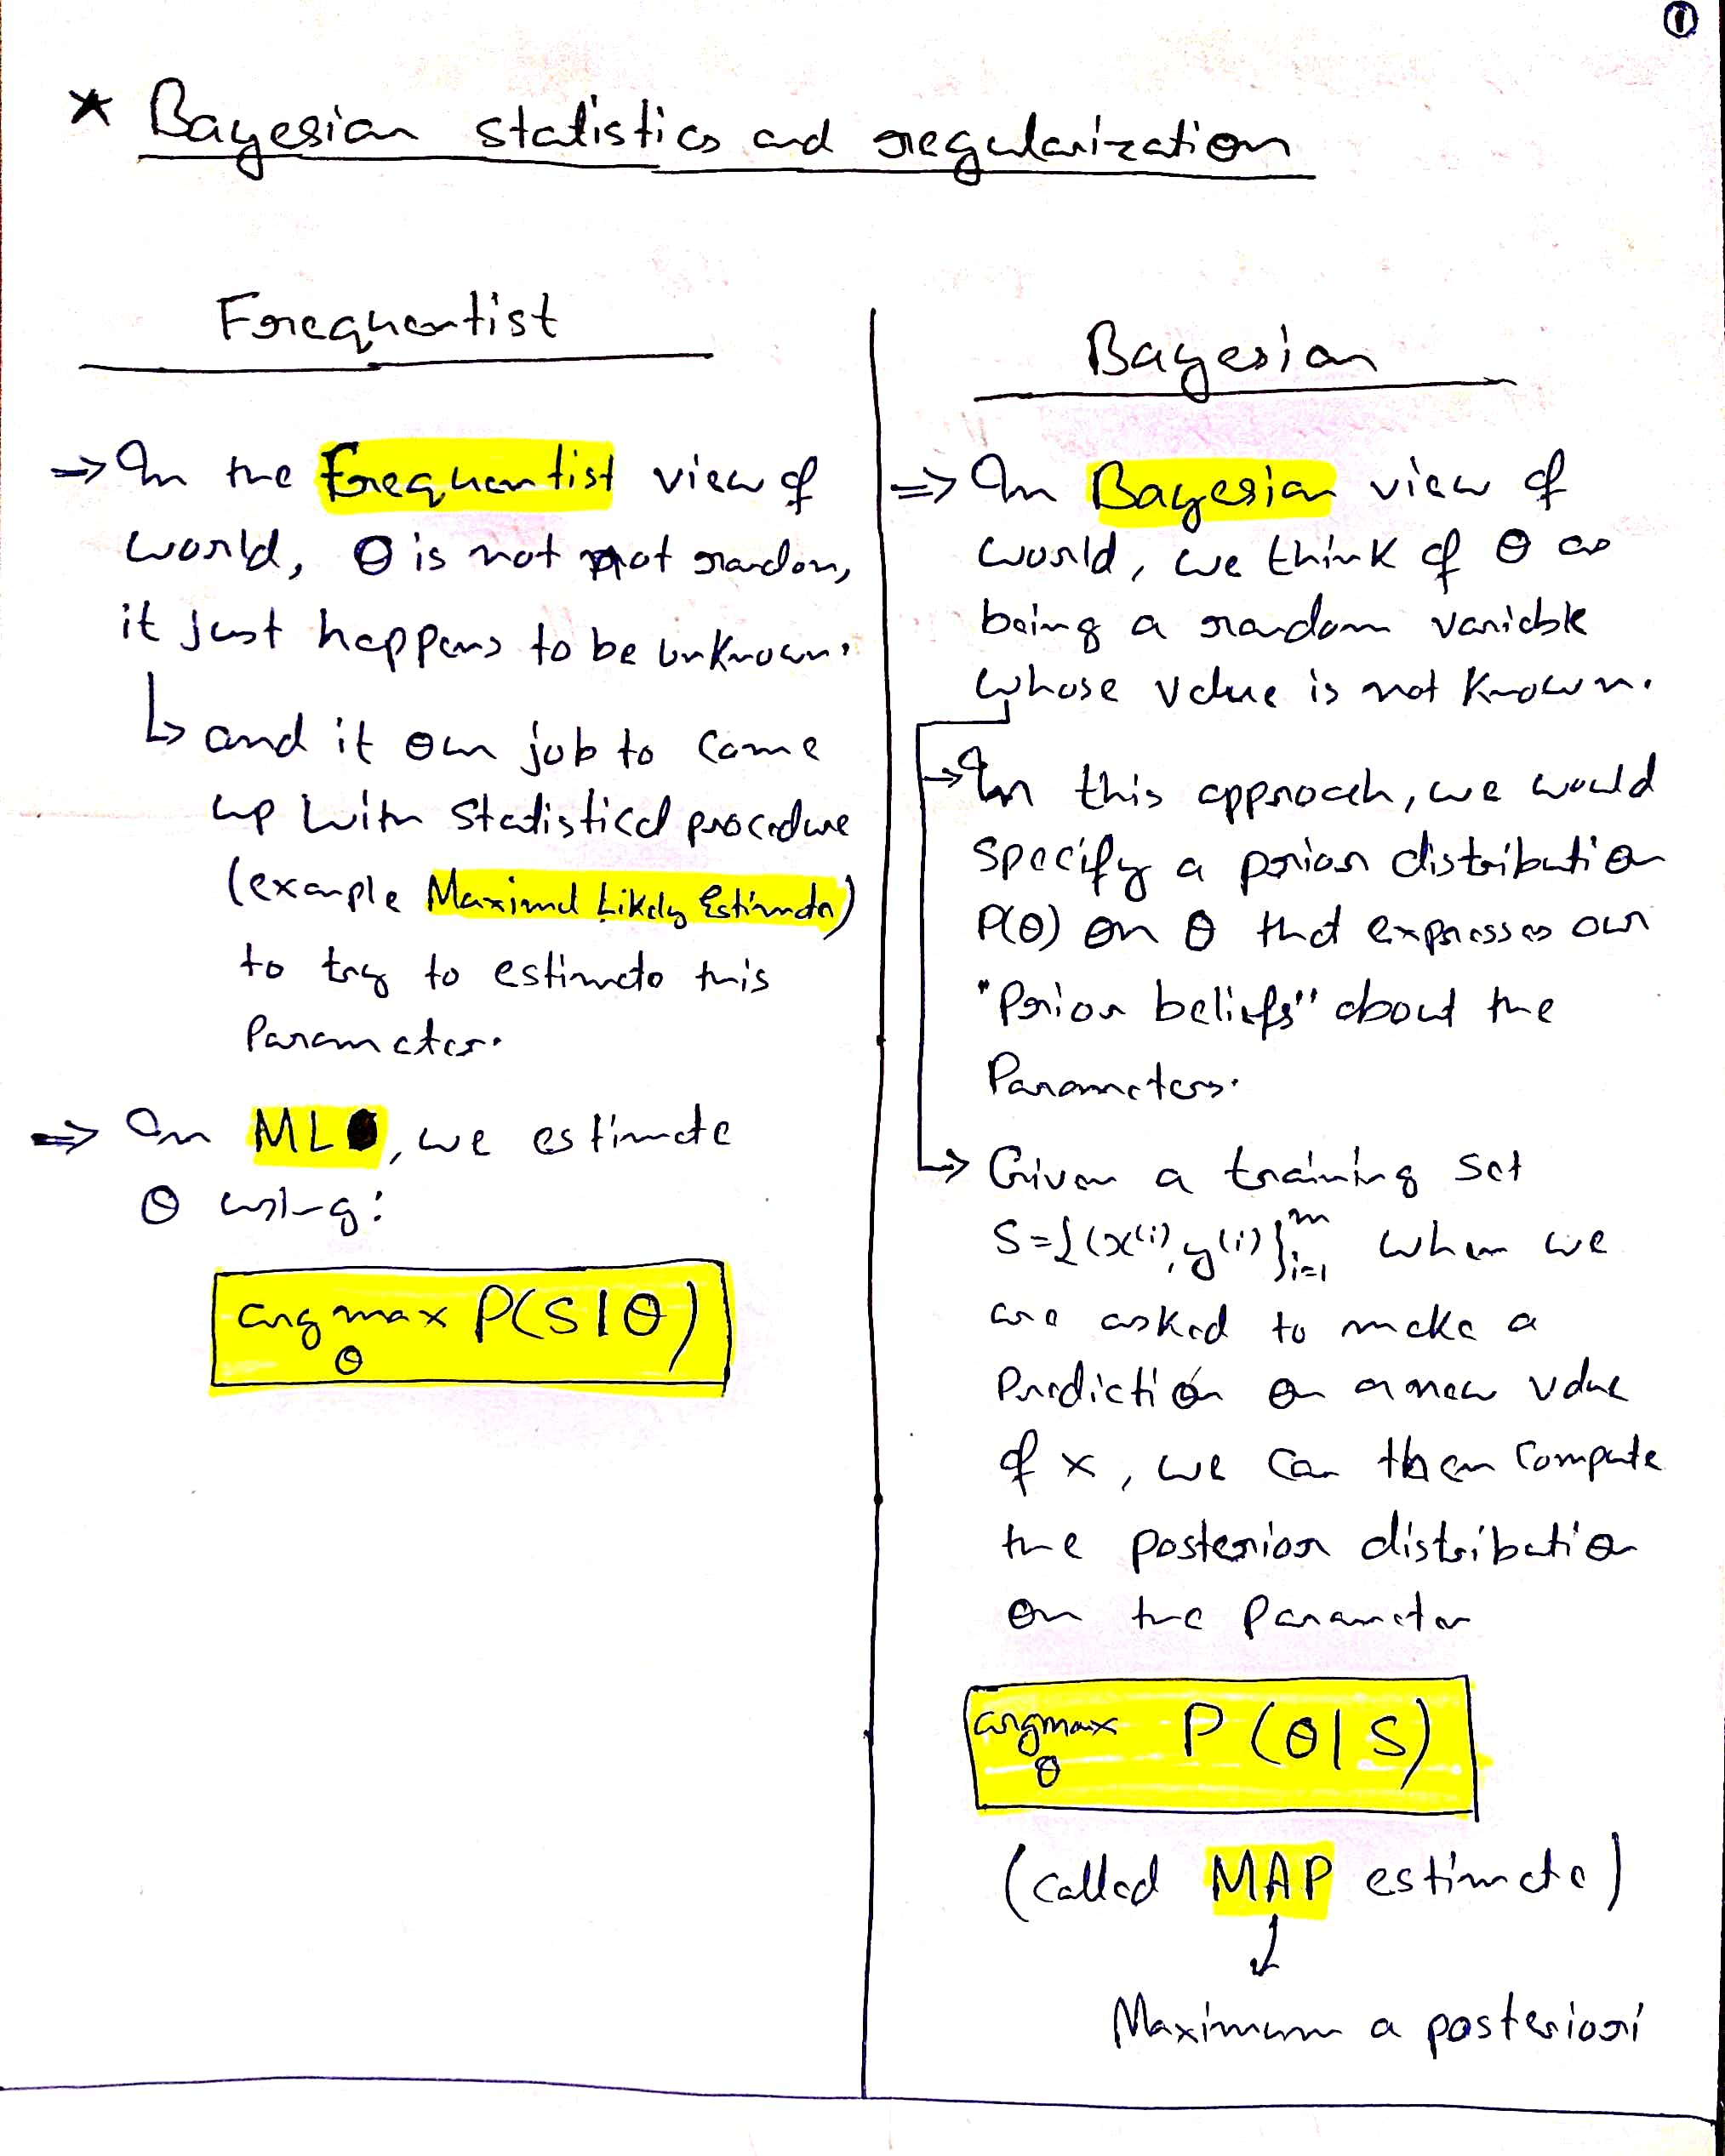 ①
* Bayesian statistics and regularization
Frequentist
⇒ In the Frequentist view of
world, θ is not not random,
it just happens to be unknown.
↳ and it our job to come
up with statistical procedure
(example Maximal Likely Estimate)
to try to estimate this
Parameter.
⇒ In ML, we estimate
θ using:
argmax P(S|θ)
θ
Bayesian
⇒ In Bayesian view of
world, we think of θ as
being a random variable
whose value is not known.
→ In this approach, we would
specify a prior distribution
P(θ) on θ that expresses our
"Prior beliefs" about the
Parameters.
→ Given a training set
S={(x⁽ⁱ⁾,y⁽ⁱ⁾}ᵐᵢ₌₁ when we
are asked to make a
Prediction on a new value
of x, we can then compute
the posterior distribution
on the Parameter
argmax P(θ|S)
θ
(called MAP estimate)
↓
Maximum a posteriori